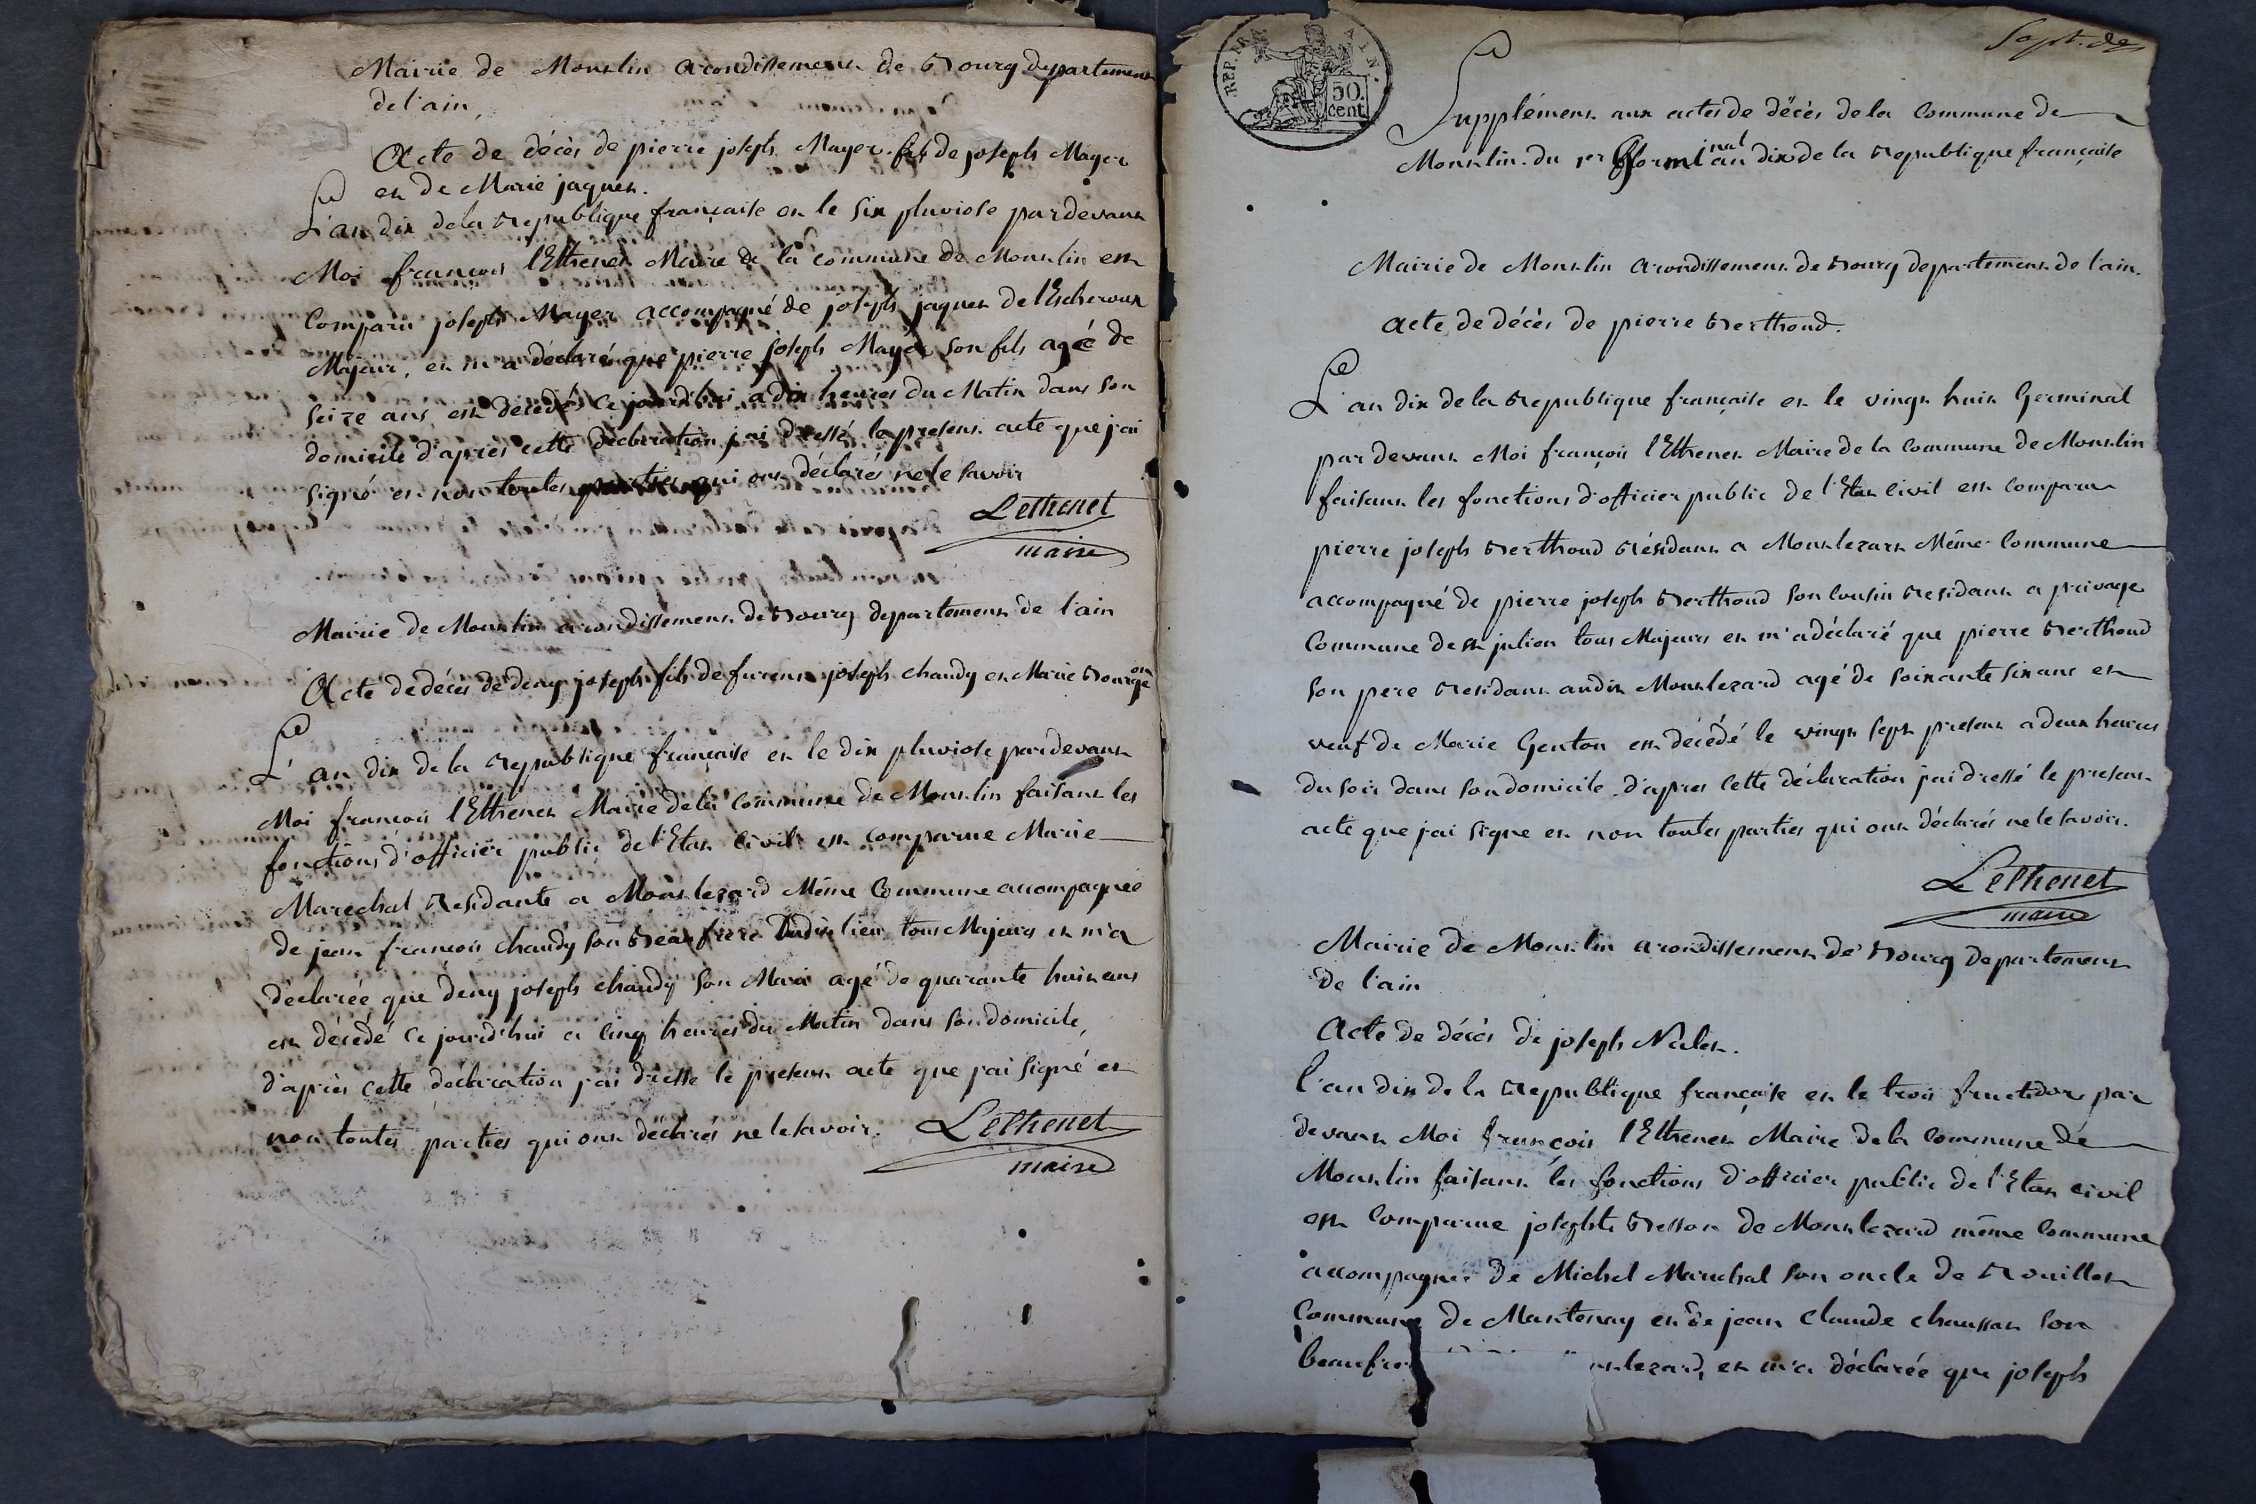 Mairie de Montlin arondissement de Bourg departement
de l'ain,
Acte de décès de pierre joseph Mayer fils de joseph Mayer
et de Marie jaquet.
L'an dix de la Republique française et le six pluviose pardevant
Moi françois l'Ethenet Maire de la commune de Montlin est
Comparu joseph Mayer accompagné de joseph jaquet de l'Escheroux
Majeur, et m'a déclaré que pierre joseph Mayer son fils agé de
seize ans est decedé ce jourd'hui a dix heures du Matin dans son
domicile d'après cette déclaration j'ai dressé le present acte que j'ai
signé et non toutes parties qui ont déclarés ne le savoir
Lethenet
maire
Mairie de Montlin arondissement de Bourg departement de l'ain
Acte de décès de deny joseph fils de furent joseph chaudy et Marie Bourgeon
L'an dix de la Republique française et le dix pluviose pardevant
Moi françois l'Ethenet Maire de la commune de Montlin faisant les
fonctions d'officier public de l'Etat Civil est comparue Marie
Marechal Residante a Montlezard Même Commune accompagnée
de jean françois chaudy son Beaufrere dudit lieu tous Majeurs et m'a
déclarée que deny joseph chaudy son Mari agé de quarante huit ans
est décédé ce jourd'hui a cinq heures du Matin dans son domicile,
d'après cette déclaration j'ai dressé le present acte que j'ai signé et
non toutes parties qui ont déclarés ne le savoir.
Lethenet
maire
REP. FRA
AIN.
50.
cent
Sept. des
Supplément aux actes de décès de la Commune de
Montlin du 1er Germinal an dix de la Republique française
Mairie de Montlin arondissement de Bourg departement de l'ain.
acte de décès de pierre Berthoud.
L'an dix de la Republique française et le vingt huit Germinal
par devant Moi françois l'Ethenet Maire de la Commune de Montlin
faisant les fonctions d'officier public de l'Etat Civil est Comparu
pierre joseph Berthoud Résidant a Montlezart Même Commune
accompagné de pierre joseph Berthoud son Cousin Residant a privage
Commune de st julien tous Majeurs et m'a déclarié que pierre Berthoud
son pere Residant audit Montlezard agé de soixante six ans et
veuf de Marie Genton est décédé le vingt sept present a deux heures
du soir dans son domicile. d'apres cette déclaration j'ai dressé le present
acte que j'ai signe et non toutes parties qui ont déclarés ne le savoir.
Lethenet
maire
Mairie de Montlin arondissement de Bourg departement
de l'ain
Acte de décès de joseph Nalet.
l'an dix de la Republique française et le trois fructidor par
devant Moi françois l'Ethenet Maire de la Commune de
Montlin faisant les fonctions d'officier public de l'Etat civil
est Comparue josephte Besson de Montlezard même Commune
accompagnee de Michel Marechal son oncle de Rouillet
Commune de Mantenay et de jean Claude chaussat son
beaufre ntlezard, et m'a déclarée que joseph